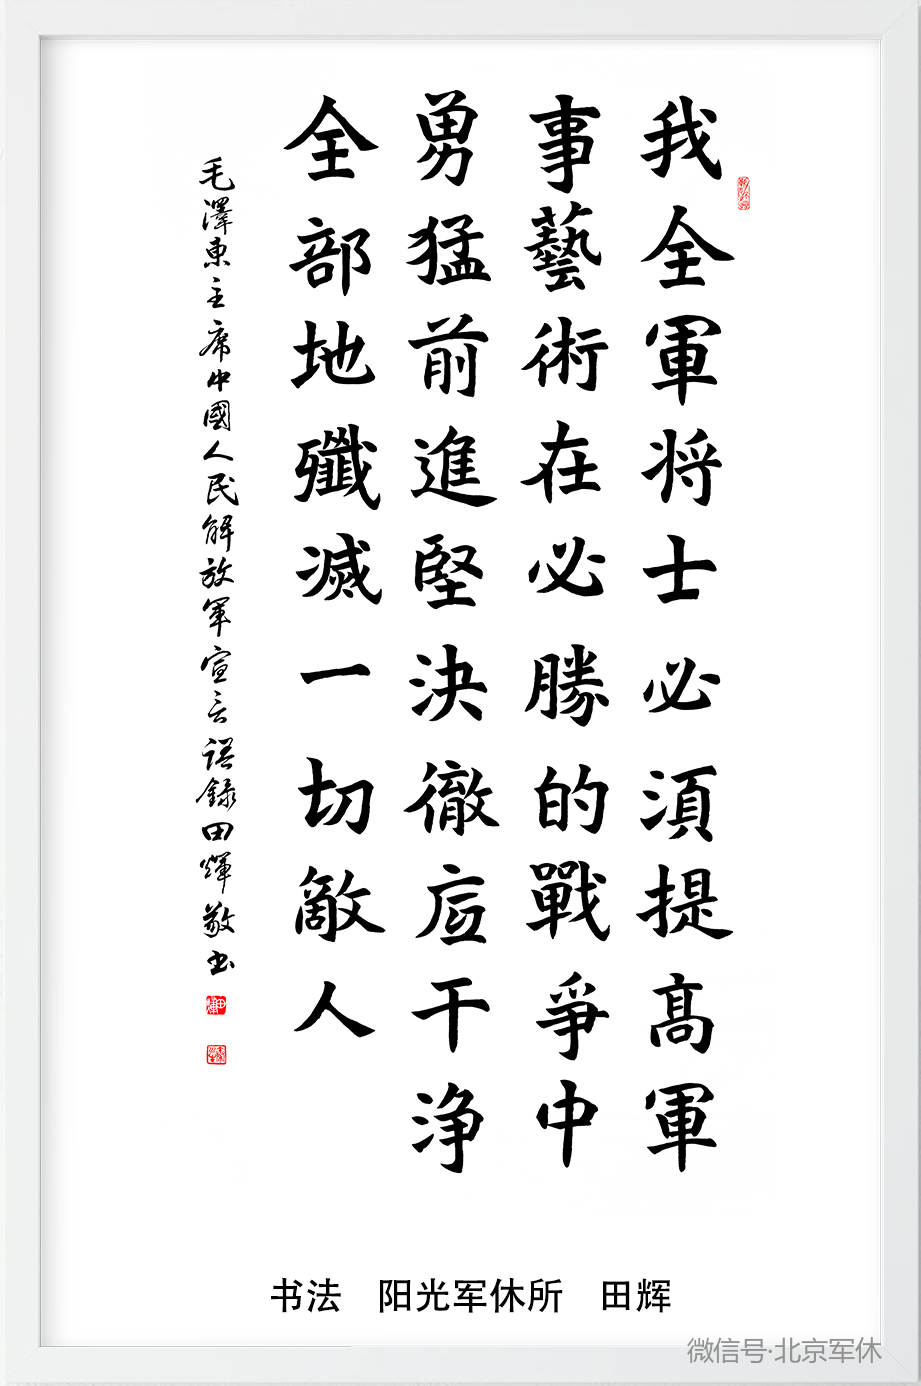 我全軍将士必須提高軍
事藝術在必勝的戰爭中
勇猛前進堅決徹底干淨
全部地殲滅一切敵人
毛澤東主席中國人民解放軍宣言語録田輝敬书
书法 阳光军休所 田辉
微信号·北京军休